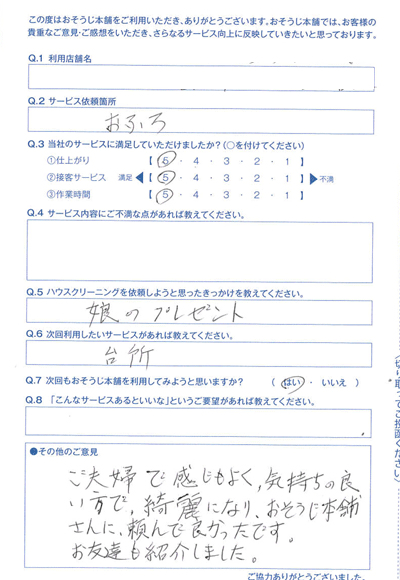 この度はおそうじ本舗をご利用いただき、ありがとうございます。おそうじ本舗では、お客様の
貴重なご意見・ご感想をいただき、さらなるサービス向上に反映していきたいと思っております。
Q.1 利用店舗名
Q.2 サービス依頼箇所
おふろ
Q.3 当社のサービスに満足していただけましたか?(○を付けてください)
①仕上がり 【 5 ・ 4 ・ 3 ・ 2 ・ 1 】
②接客サービス 満足 ◀【 5 ・ 4 ・ 3 ・ 2 ・ 1 】▶ 不満
③作業時間 【 5 ・ 4 ・ 3 ・ 2 ・ 1 】
Q.4 サービス内容にご不満な点があれば教えてください。
Q.5 ハウスクリーニングを依頼しようと思ったきっかけを教えてください。
娘のプレゼント
Q.6 次回利用したいサービスがあれば教えてください。
台所
Q.7 次回もおそうじ本舗を利用してみようと思いますか? ( はい ・ いいえ )
Q.8 「こんなサービスあるといいな」というご要望があれば教えてください。
●その他のご意見
ご夫婦で感じもよく,気持ちの良
い方で,綺麗になり,おそうじ本舗
さんに、頼んで良かったです。
お友達も紹介しました。
ご協力ありがとうございました。
切り取ってご投函ください)